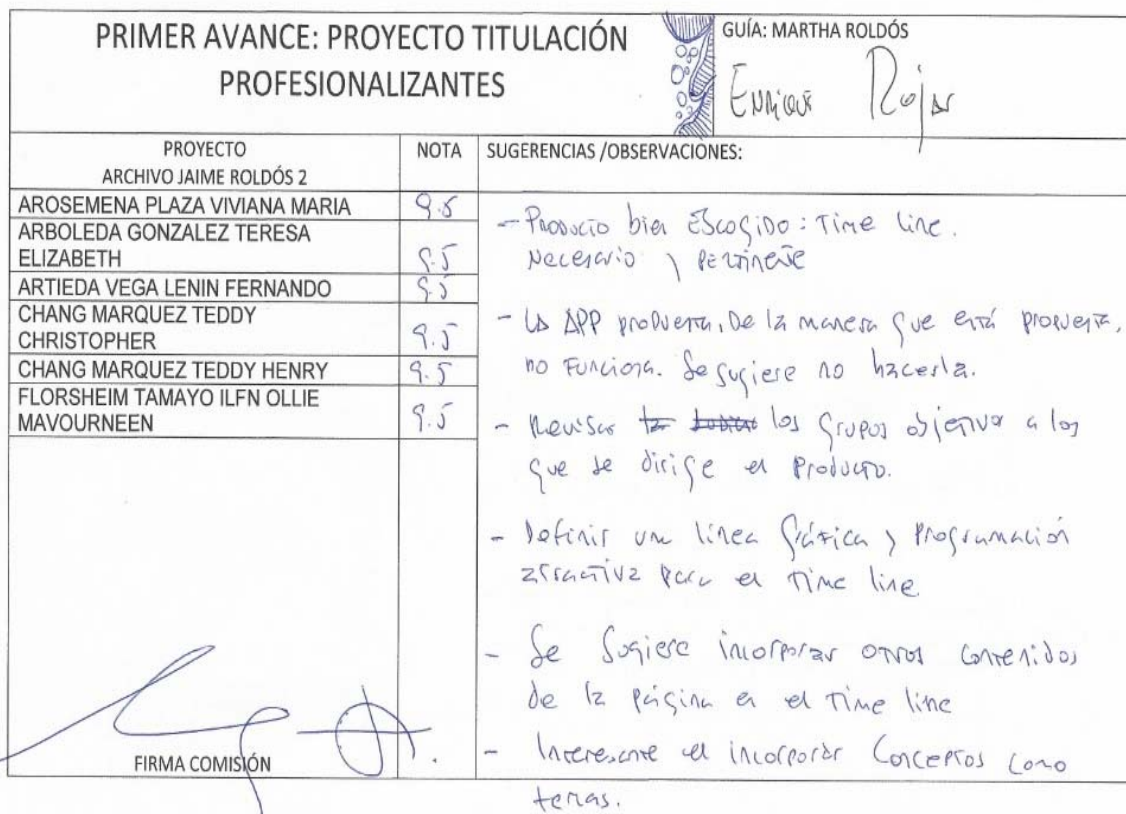 PRIMER AVANCE: PROYECTO TITULACIÓN
PROFESIONALIZANTES
GUÍA: MARTHA ROLDÓS
Enrique Rojas
PROYECTO
ARCHIVO JAIME ROLDÓS 2
NOTA
SUGERENCIAS /OBSERVACIONES:
AROSEMENA PLAZA VIVIANA MARIA 9.5
ARBOLEDA GONZALEZ TERESA
ELIZABETH 9.5
ARTIEDA VEGA LENIN FERNANDO 9.5
CHANG MARQUEZ TEDDY
CHRISTOPHER 9.5
CHANG MARQUEZ TEDDY HENRY 9.5
FLORSHEIM TAMAYO ILFN OLLIE
MAVOURNEEN 9.5
- Producto bien Escogido: Time line.
Necesario y Pertinente
- La APP propuesta, De la manera que está propuesta,
no Funciona. Se sugiere no hacerla.
- Revisar los Grupos objetivo a los
que se dirige el Producto.
- Definir una línea Gráfica y Programación
atractiva para el Time line
- Se Sugiere incorporar otros contenidos
de la página en el Time line
- Interesante el incorporar Conceptos como
temas.
FIRMA COMISIÓN